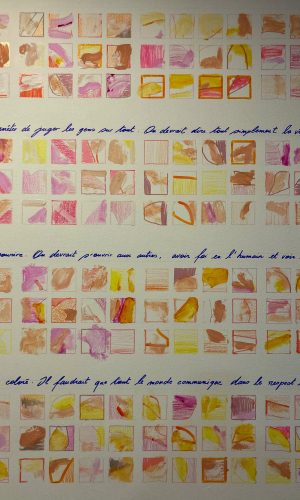 de juger les gens sur tout. On devrait dire tout simplement la
On devrait s'ouvrir aux autres, avoir foi en l'humain et
coloré. Il faudrait que tout le monde communique dans le respect